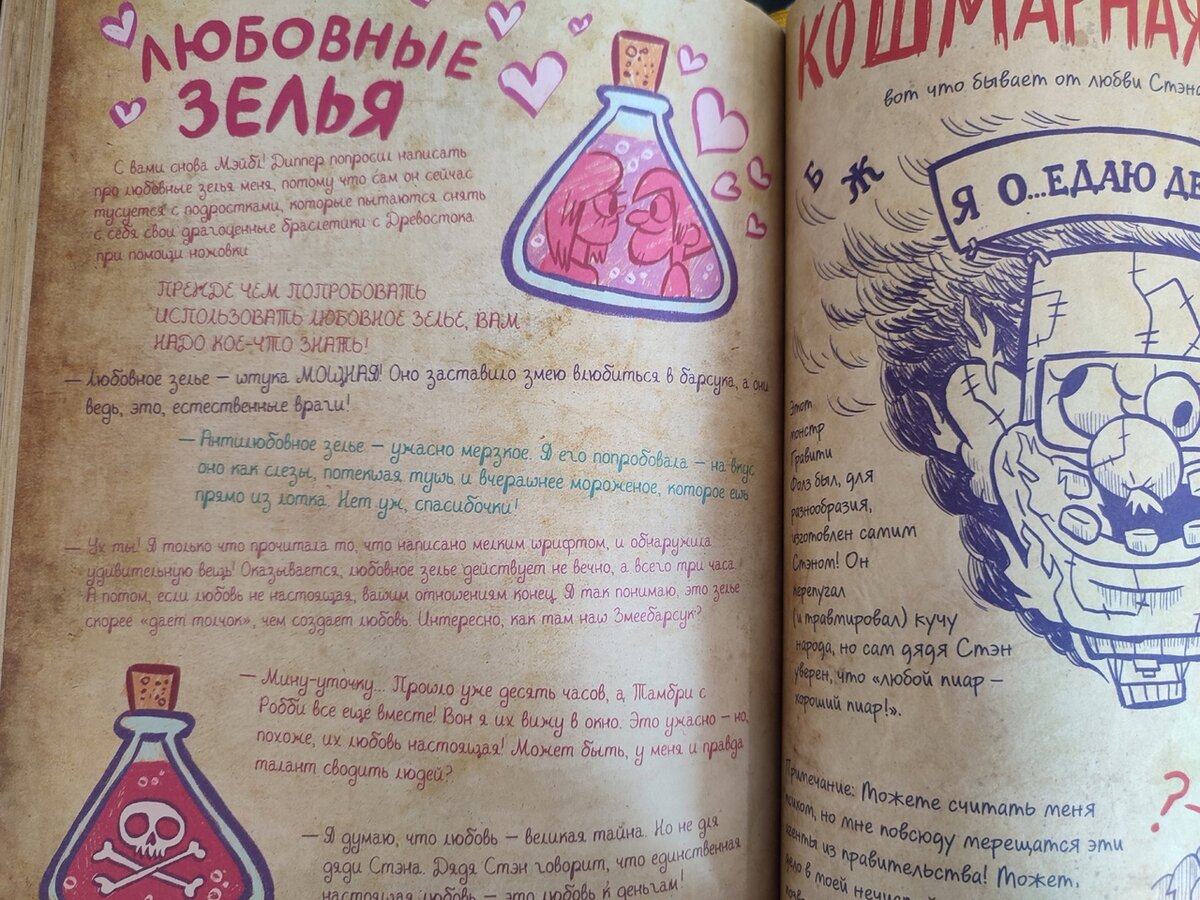 ЛЮБОВНЫЕ
ЗЕЛЬЯ
С вами снова Мэйбл! Диппер попросил написать
про любовные зелья меня, потому что сам он сейчас
тусуется с подростками, которые пытаются снять
с себя свои драгоценные браслетики с Древостока
при помощи ножовки
ПРЕЖДЕ ЧЕМ ПОПРОБОВАТЬ
ИСПОЛЬЗОВАТЬ ЛЮБОВНОЕ ЗЕЛЬЕ, ВАМ
НАДО КОЕ-ЧТО ЗНАТЬ!
— Любовное зелье – штука МОЩНАЯ! Оно заставило змею влюбиться в барсука, а они
ведь, это, естественные враги!
— Антилюбовное зелье – ужасно мерзкое. Я его попробовала – на вкус
оно как слезы, потекшая тушь и вчерашнее мороженое, которое ешь
прямо из лотка. Нет уж, спасибочки!
— Ух ты! Я только что прочитала то, что написано мелким шрифтом, и обнаружила
удивительную вещь! Оказывается, любовное зелье действует не вечно, а всего три часа!
А потом, если любовь не настоящая, вашим отношениям конец. Я так понимаю, это зелье
скорее «дает толчок», чем создает любовь. Интересно, как там наш Змеебарсук?
— Мину-уточку... Прошло уже десять часов, а Тамбри с
Робби все еще вместе! Вон я их вижу в окно. Это ужасно – но,
похоже, их любовь настоящая! Может быть, у меня и правда
талант сводить людей?
— Я думаю, что любовь – великая тайна. Но не для
дяди Стэна. Дядя Стэн говорит, что единственная
настоящая любовь – это любовь к деньгам!
КОШМАРНАЯ
вот что бывает от любви Стэна
Б Ж
Я О...ЕДАЮ ДЕ
Этот
монстр
Гравити
Фолз был, для
разнообразия,
изготовлен самим
Стэном! Он
перепугал
(и травмировал) кучу
народа, но сам дядя Стэн
уверен, что «любой пиар –
хороший пиар!».
Примечание: Можете считать меня
психом, но мне повсюду мерещатся эти
агенты из правительства! Может,
дело в моей
?